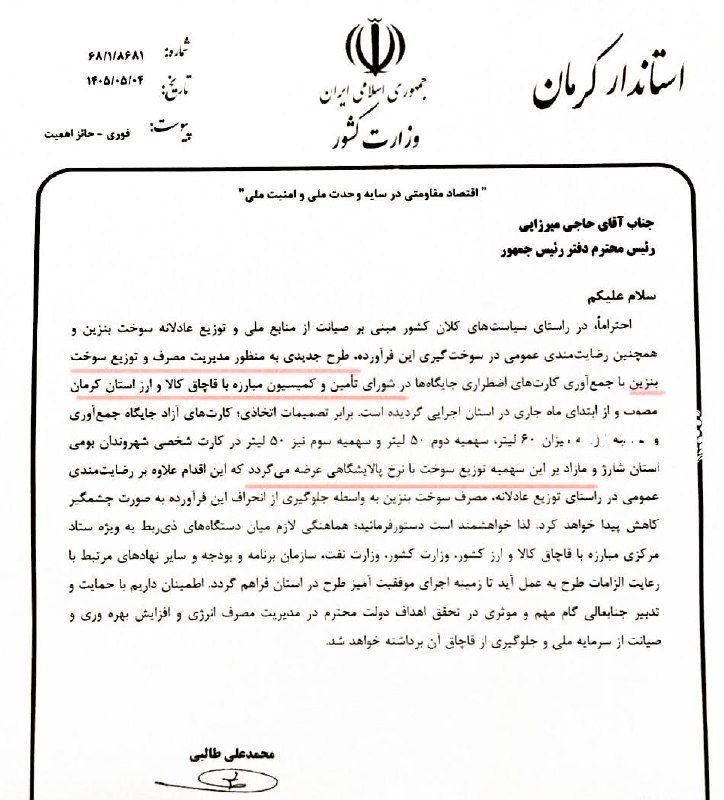 استاندار کرمان
جمهوری اسلامی ایران
وزارت کشور
شماره: ۶۸/۱/۸۶۸۱
تاریخ: ۱۴۰۵/۰۵/۰۴
پیوست: فوری - حائز اهمیت
" اقتصاد مقاومتی در سایه وحدت ملی و امنیت ملی"
جناب آقای حاجی میرزایی
رئیس محترم دفتر رئیس جمهور
سلام علیکم
احتراماً، در راستای سیاست‌های کلان کشور مبنی بر صیانت از منابع ملی و توزیع عادلانه سوخت بنزین و
همچنین رضایت‌مندی عمومی در سوخت‌گیری این فرآورده، طرح جدیدی به منظور مدیریت مصرف و توزیع سوخت
بنزین با جمع‌آوری کارت‌های اضطراری جایگاه‌ها در شورای تأمین و کمیسیون مبارزه با قاچاق کالا و ارز استان کرمان
مصوب و از ابتدای ماه جاری در استان اجرایی گردیده است. برابر تصمیمات اتخاذی؛ کارت‌های آزاد جایگاه جمع‌آوری
و میزان ۶۰ لیتر، سهمیه دوم ۵۰ لیتر و سهمیه سوم نیز ۵۰ لیتر در کارت شخصی شهروندان بومی
استان شارژ و مازاد بر این سهمیه توزیع سوخت با نرخ پالایشگاهی عرضه می‌گردد که این اقدام علاوه بر رضایت‌مندی
عمومی در راستای توزیع عادلانه، مصرف سوخت بنزین به واسطه جلوگیری از انحراف این فرآورده به صورت چشمگیر
کاهش پیدا خواهد کرد. لذا خواهشمند است دستورفرمائید؛ هماهنگی لازم میان دستگاه‌های ذی‌ربط به ویژه ستاد
مرکزی مبارزه با قاچاق کالا و ارز کشور، وزارت کشور، وزارت نفت، سازمان برنامه و بودجه و سایر نهادهای مرتبط با
رعایت الزامات طرح به عمل آید تا زمینه اجرای موفقیت آمیز طرح در استان فراهم گردد. اطمینان داریم با حمایت و
تدبیر جنابعالی گام مهم و موثری در تحقق اهداف دولت محترم در مدیریت مصرف انرژی و افزایش بهره وری و
صیانت از سرمایه ملی و جلوگیری از قاچاق آن برداشته خواهد شد.
محمدعلی طالبی